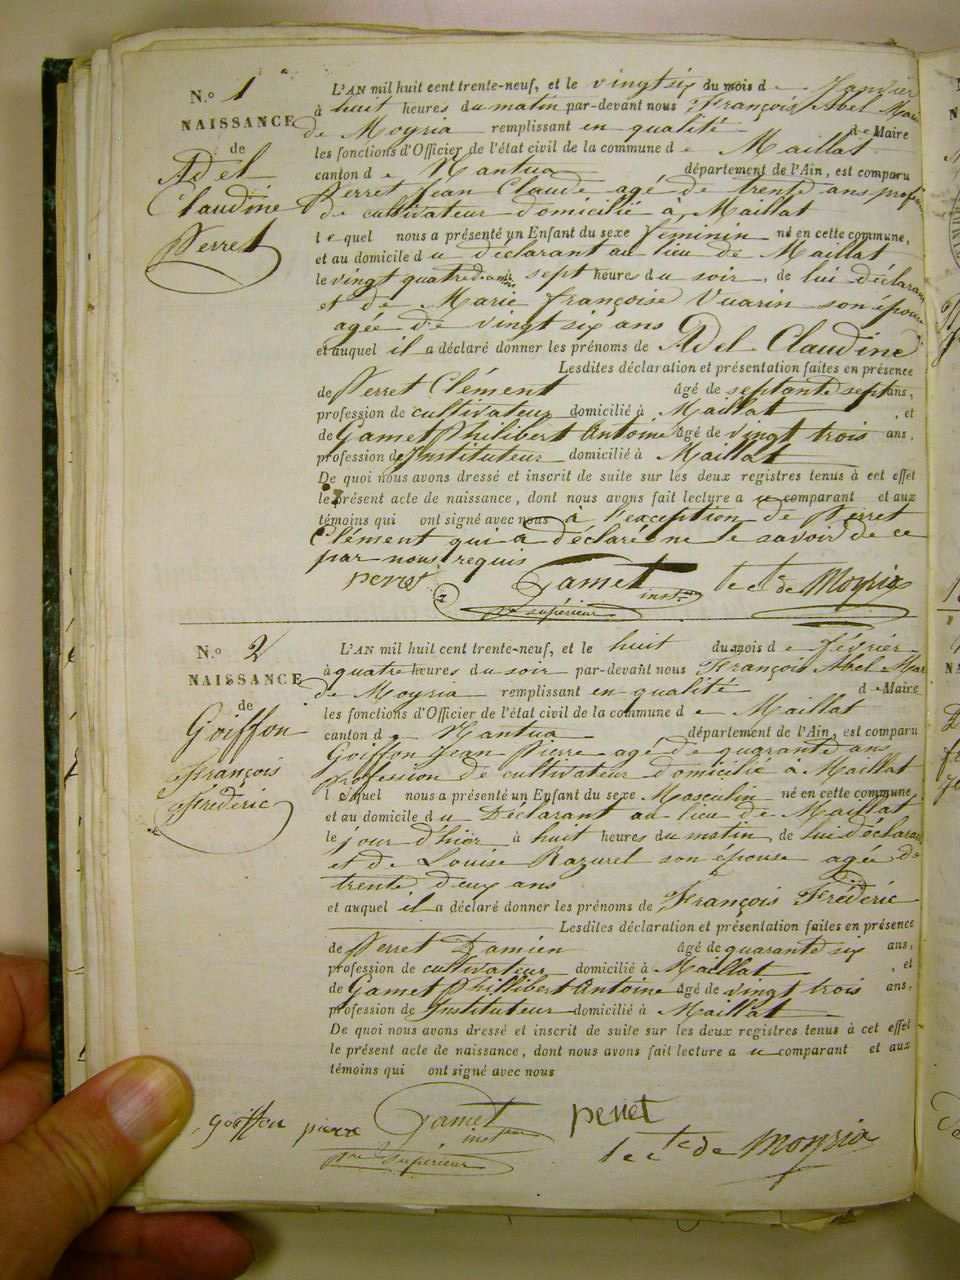 N.º 1
NAISSANCE
de
Adel
Claudine
Perret
L'AN mil huit cent trente-neuf, et le vingt six du mois de Janvier
à huit heures du matin par-devant nous François Abel Marie
de Moyria remplissant en qualité de Maire
les fonctions d'Officier de l'état civil de la commune de Maillat
canton de Nantua département de l'Ain, est comparu
Perret Jean Claude agé de trente ans profession
de cultivateur domicilié à Maillat
lequel nous a présenté un Enfant du sexe feminin né en cette commune,
et au domicile du déclarant au lieu de Maillat
le vingt quatre sept heures du soir, de lui déclarant
et de Marie françoise Vuarin son épouse
agée de vingt six ans
et auquel il a déclaré donner les prénoms de Adel Claudine
Lesdites déclaration et présentation faites en présence
de Perret Clément âgé de septante sept ans,
profession de cultivateur domicilié à Maillat , et
de Gamet Philibert Antoine âgé de vingt trois ans,
profession d'Instituteur domicilié à Maillat
De quoi nous avons dressé et inscrit de suite sur les deux registres tenus à cet effet
le présent acte de naissance, dont nous avons fait lecture au comparant et aux
témoins qui ont signé avec nous à l'exception de Perret
Clément qui a déclaré ne le savoir de ce
par nous requis
perret Gamet le cte de Moyria
instr
pre supérieur
N.º 2
NAISSANCE
de
Goiffon
François
Fréderic
L'AN mil huit cent trente-neuf, et le huit du mois de février
à quatre heures du soir par-devant nous François Abel Mar
de Moyria remplissant en qualité de Maire
les fonctions d'Officier de l'état civil de la commune de Maillat
canton de Nantua département de l'Ain, est comparu
Goiffon Jean Pierre agé de quarante ans
profession de cultivateur domicilié à Maillat
lequel nous a présenté un Enfant du sexe Masculin né en cette commune
et au domicile du Déclarant au lieu de Maillat
le jour d'hier à huit heures du matin, de lui déclarant
et de Louise Razurel son épouse agée de
trente deux ans
et auquel il a déclaré donner les prénoms de François Fréderic
Lesdites déclaration et présentation faites en présence
de Perret Damien âgé de quarante six ans,
profession de cultivateur domicilié à Maillat , et
de Gamet Philibert Antoine âgé de vingt trois ans,
profession de Instituteur domicilié à Maillat
De quoi nous avons dressé et inscrit de suite sur les deux registres tenus à cet effet
le présent acte de naissance, dont nous avons fait lecture au comparant et aux
témoins qui ont signé avec nous
goiffon pierre Gamet perret
instr
pre supérieur le cte de Moyria